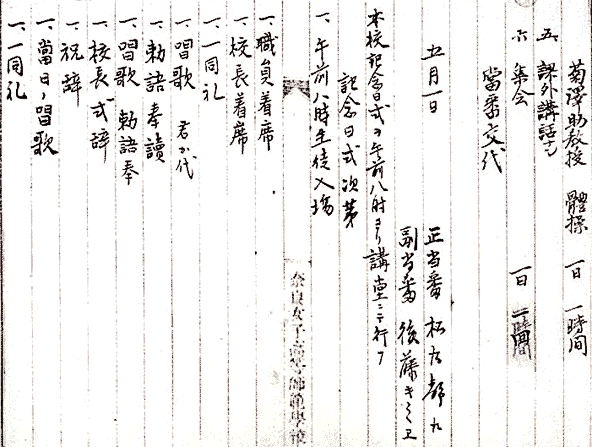 菊澤助教授 體操 一日 一時間
五、課外講話ナシ
六、集会 一日 一時間
當番交代
五月一日 正当番 松及都九
副当番 後藤キミヱ
本校記念日式ヲ午前八時ヨリ講堂ニテ行フ
記念日式次第
一、午前八時生徒入場
奈良女子高等師範學校
一、職員着席
一、校長着席
一、一同礼
一、唱歌 君か代
一、勅語奉讀
一、唱歌 勅語奉
一、校長式辞
一、祝辞
一、當日ノ唱歌
一、一同礼